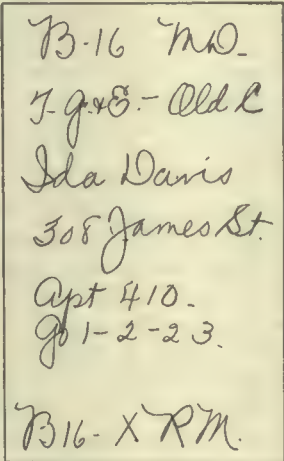 B-16 MD-
T.G.&E.- Old C
Ida Davis
308 James St.
Apt 410-
Go 1-2-23.
B16- X RM.